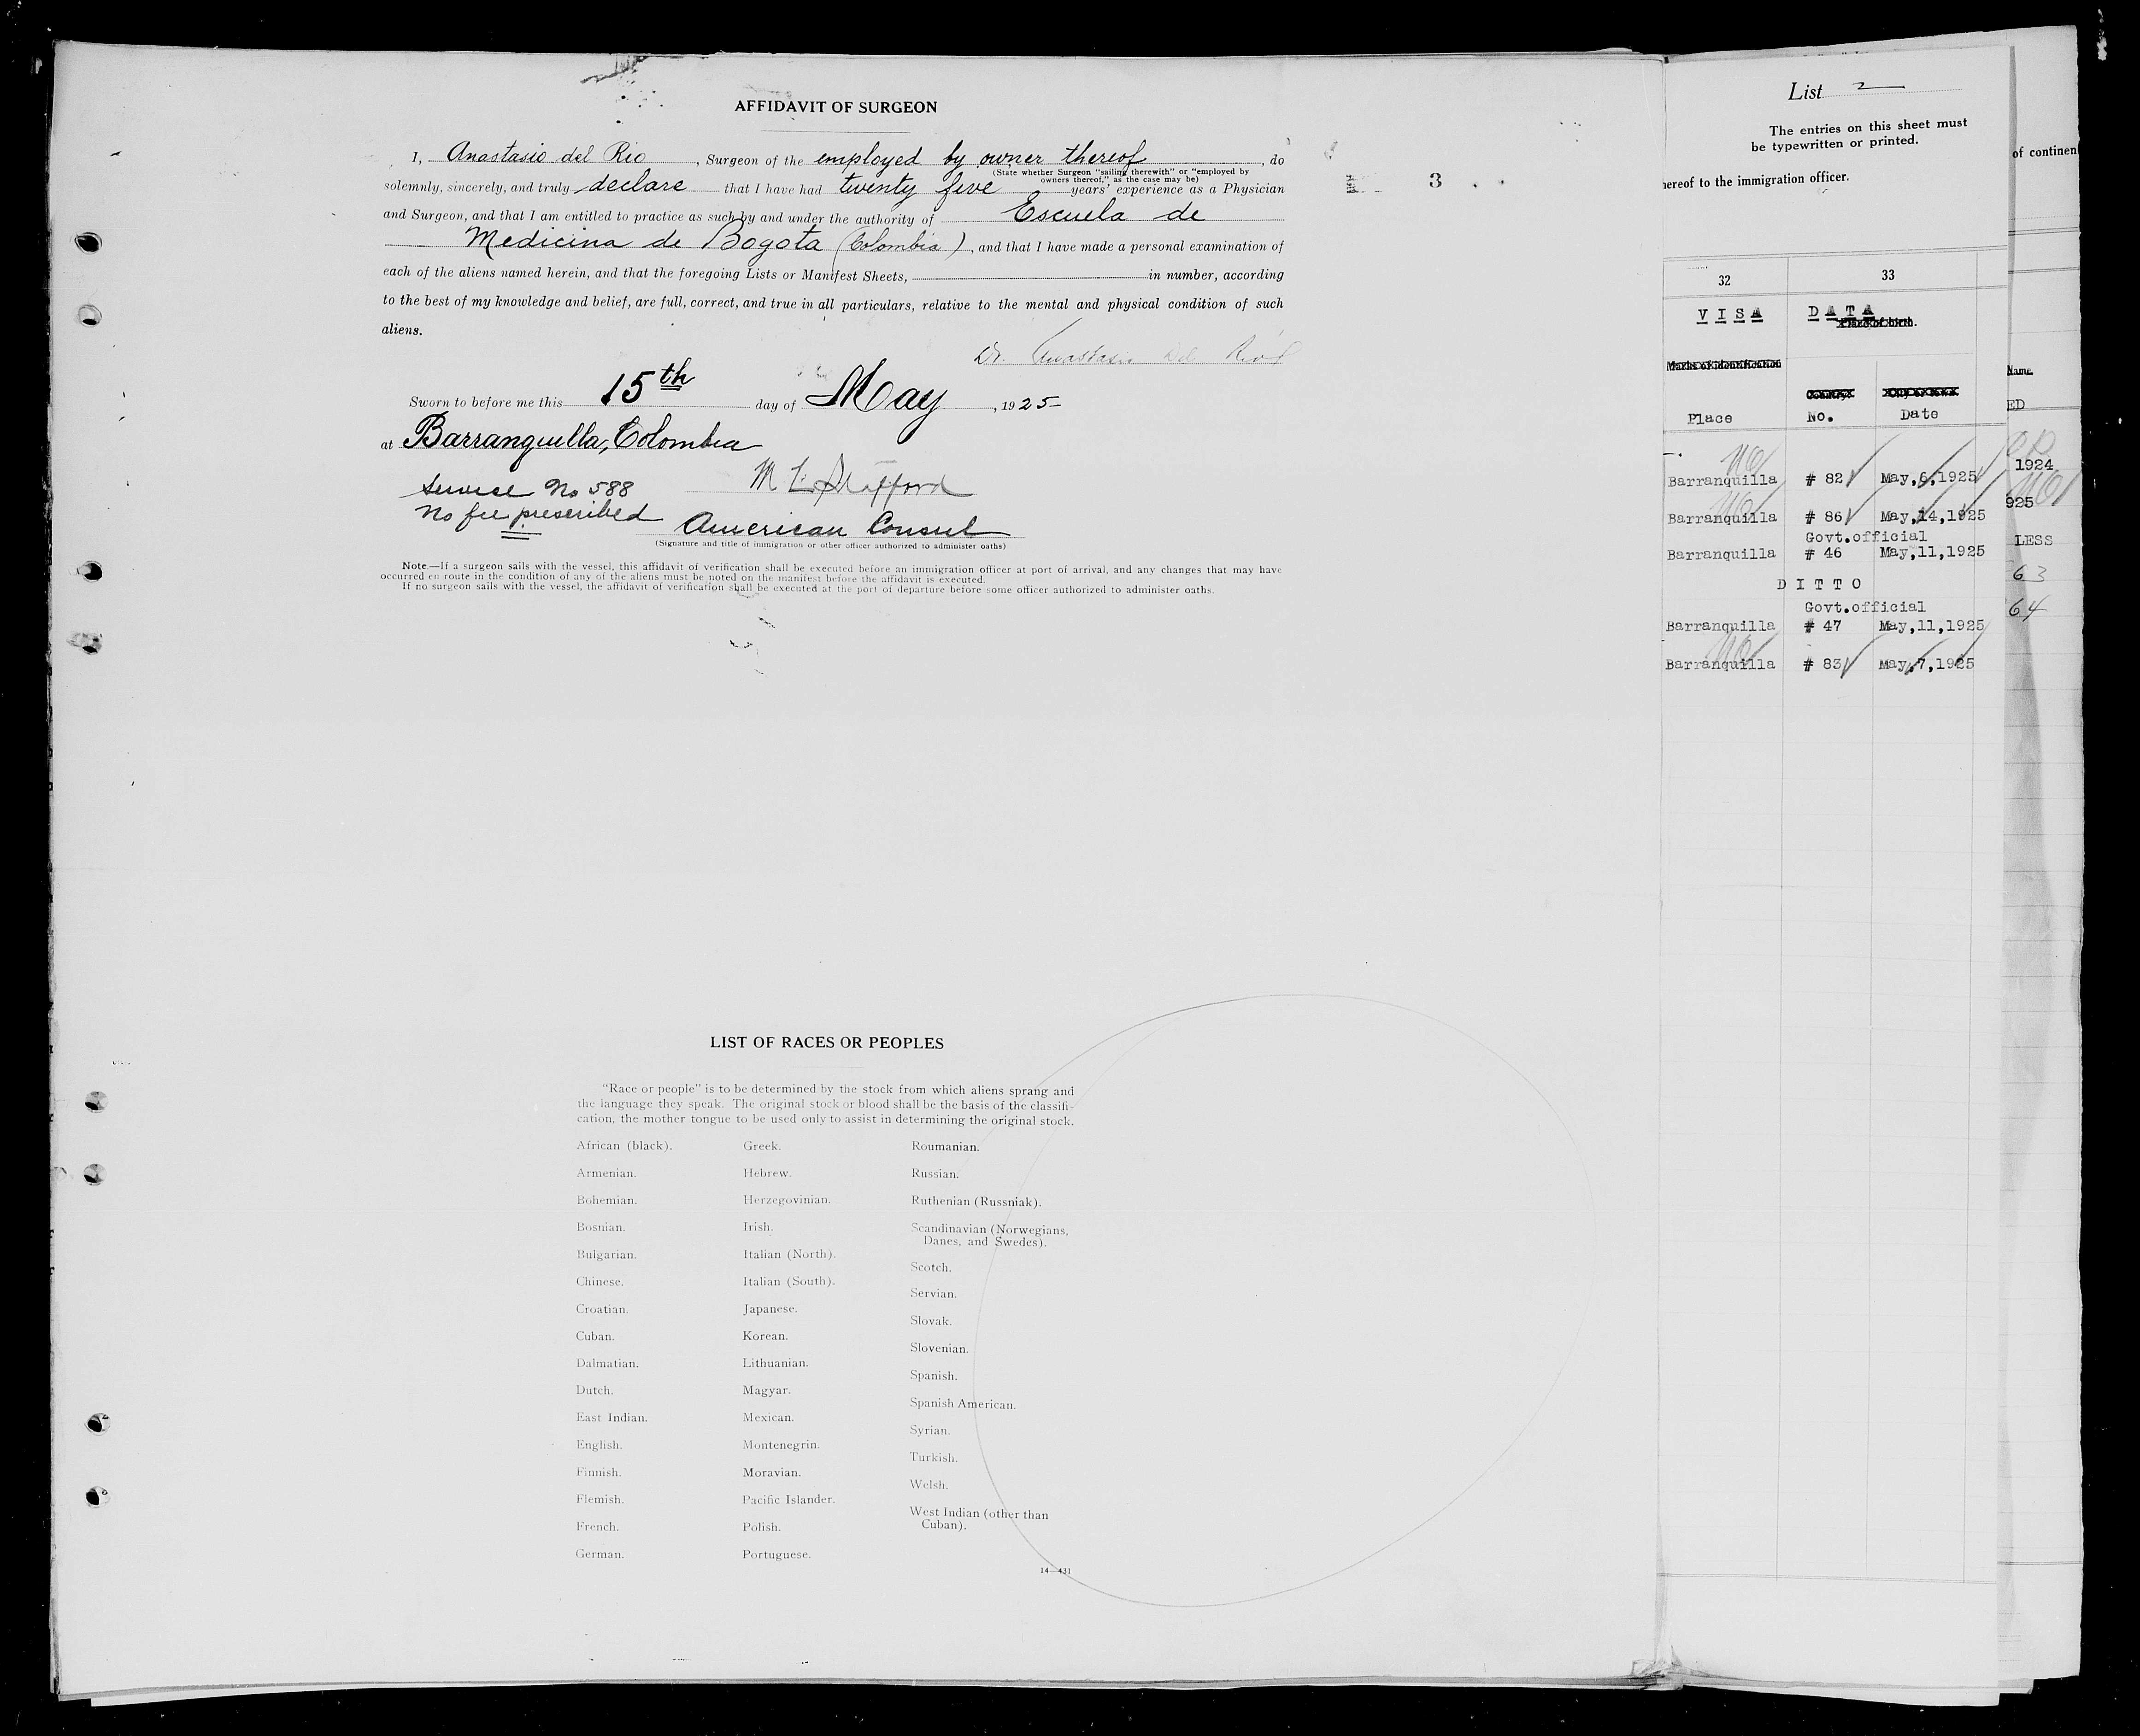 AFFIDAVIT OF SURGEON
I, Anastasio del Rio, Surgeon of the employed by owner thereof, do
(State whether Surgeon "sailing therewith" or "employed by
owners thereof," as the case may be)
solemnly, sincerely, and truly declare that I have had twenty five years' experience as a Physician
and Surgeon, and that I am entitled to practice as such by and under the authority of Escuela de
Medicina de Bogota (Colombia), and that I have made a personal examination of
each of the aliens named herein, and that the foregoing Lists or Manifest Sheets, in number, according
to the best of my knowledge and belief, are full, correct, and true in all particulars, relative to the mental and physical condition of such
aliens.
Dr. Anastasio Del Rio
Sworn to before me this 15th day of May, 1925
at Barranquilla, Colombia
Service No 588
No fee prescribed
American Consul
(Signature and title of immigration or other officer authorized to administer oaths)
Note.—If a surgeon sails with the vessel, this affidavit of verification shall be executed before an immigration officer at port of arrival, and any changes that may have
occurred en route in the condition of any of the aliens must be noted on the manifest before the affidavit is executed.
If no surgeon sails with the vessel, the affidavit of verification shall be executed at the port of departure before some officer authorized to administer oaths.
3
LIST OF RACES OR PEOPLES
"Race or people" is to be determined by the stock from which aliens sprang and
the language they speak. The original stock or blood shall be the basis of the classifi-
cation, the mother tongue to be used only to assist in determining the original stock.
African (black).
Armenian.
Bohemian.
Bosnian.
Bulgarian.
Chinese.
Croatian.
Cuban.
Dalmatian.
Dutch.
East Indian.
English.
Finnish.
Flemish.
French.
German.
Greek.
Hebrew.
Herzegovinian.
Irish.
Italian (North).
Italian (South).
Japanese.
Korean.
Lithuanian.
Magyar.
Mexican.
Montenegrin.
Moravian.
Pacific Islander.
Polish.
Portuguese.
Roumanian.
Russian.
Ruthenian (Russniak).
Scandinavian (Norwegians,
Danes, and Swedes).
Scotch.
Servian.
Slovak.
Slovenian.
Spanish.
Spanish American.
Syrian.
Turkish.
Welsh.
West Indian (other than
Cuban).
14—431
List 2
The entries on this sheet must
be typewritten or printed.
hereof to the immigration officer.
32 33
VISA DATA
Place of birth.
Marks of identification
Place No. Date
Barranquilla # 82 May,6,1925
Barranquilla # 86 May,14,1925
Govt.official
Barranquilla # 46 May,11,1925
DITTO
Govt.official
Barranquilla # 47 May,11,1925
Barranquilla # 83 May.7,1925
of continen
Name.
ED
1924
925
LESS
63
64